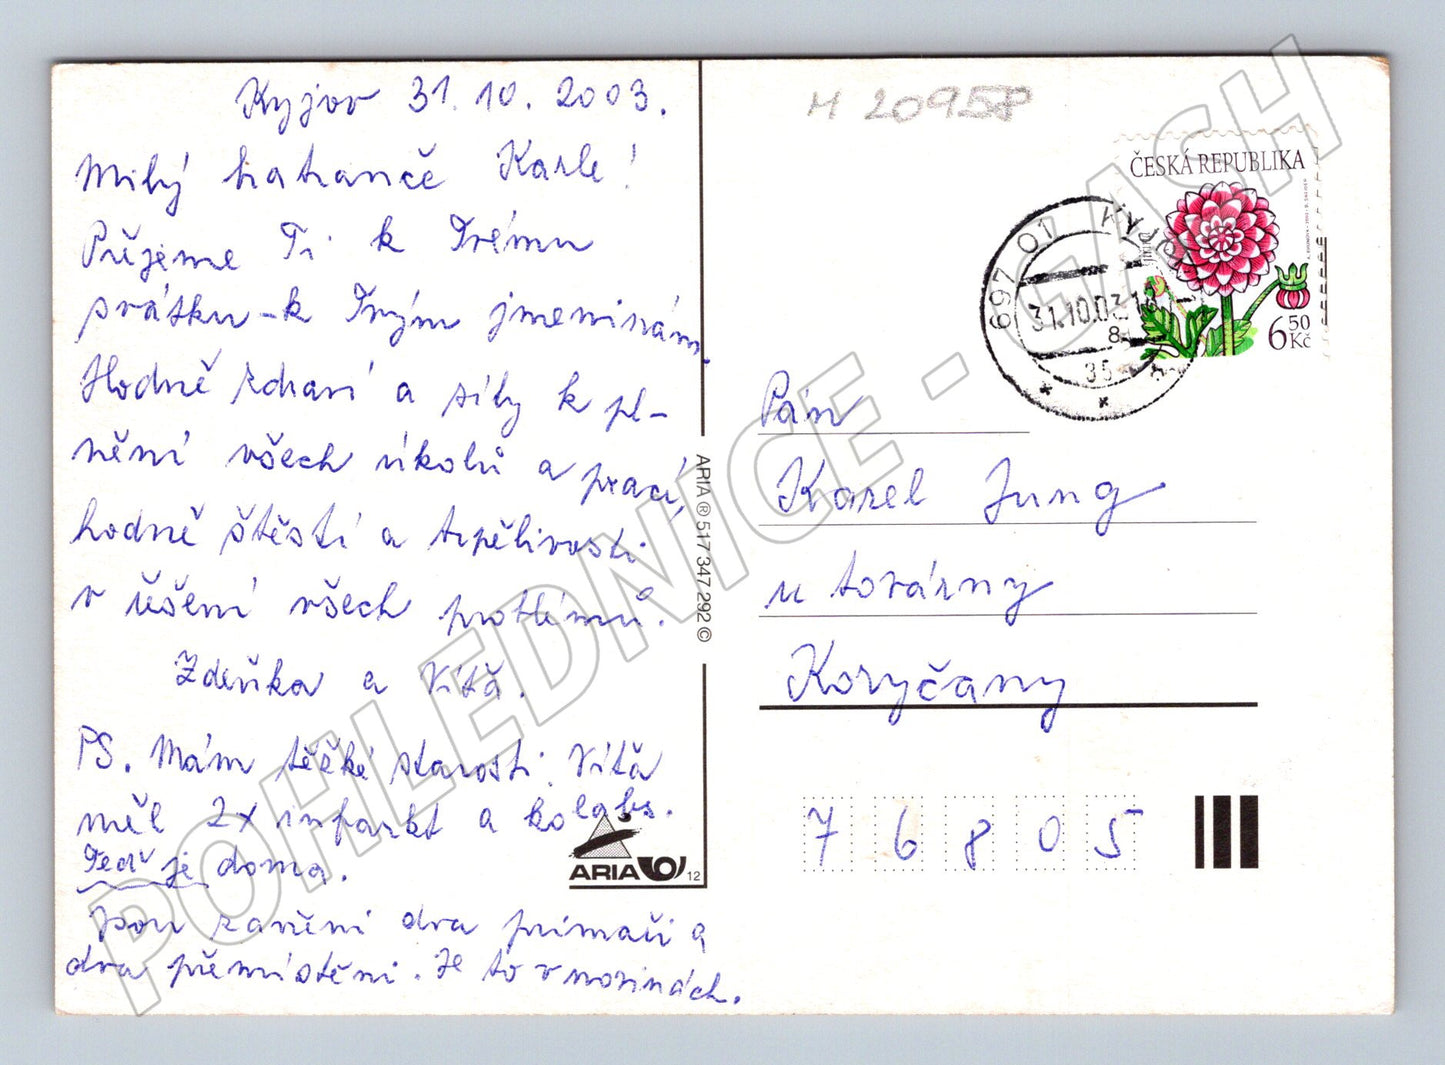 Kyjov 31.10.2003.
Milý bratranče Karle!
Přejeme Ti k Tvému
svátku - k Tvým jmeninám.
Hodně zdraví a síly k pl-
nění všech úkolů a prací,
hodně štěstí a trpělivosti
v řešení všech problémů.
Zdeňka a Víťa.
PS. Mám těžké starosti. Víťa
měl 2x infarkt a kolabs.
Teď je doma.
Jsou zavřeni dva primáři a
dva přemístěni. Je to v novinách.
ARIA 12
ARIA ® 517 347 292 ©
H 20958
ČESKÁ REPUBLIKA
6 50 Kč
697 01 KYJOV 1
31.10.03
8
35
Pán
Karel Jung
u továrny
Koryčany
76805
POHLEDNICE - CASH